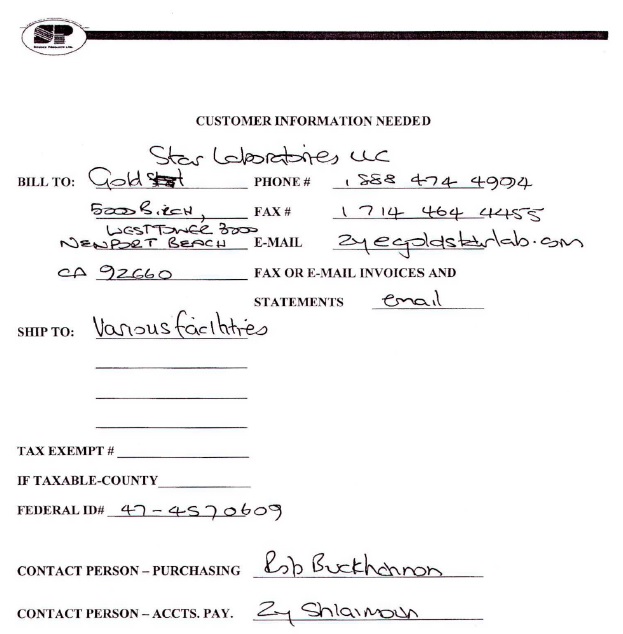 SP
CUSTOMER INFORMATION NEEDED
Star Laboratories LLC
BILL TO: Gold PHONE # 1 888 474 4904
5000 BIRCH, FAX # 1 714 464 4455
WEST TOWER 3000
NEWPORT BEACH E-MAIL zy@goldstarlab.com
CA 92660 FAX OR E-MAIL INVOICES AND
STATEMENTS email
SHIP TO: Various facilities
TAX EXEMPT #
IF TAXABLE-COUNTY
FEDERAL ID# 47-4570609
CONTACT PERSON – PURCHASING Rob Buckhannon
CONTACT PERSON – ACCTS. PAY. Zy Shlaimoun